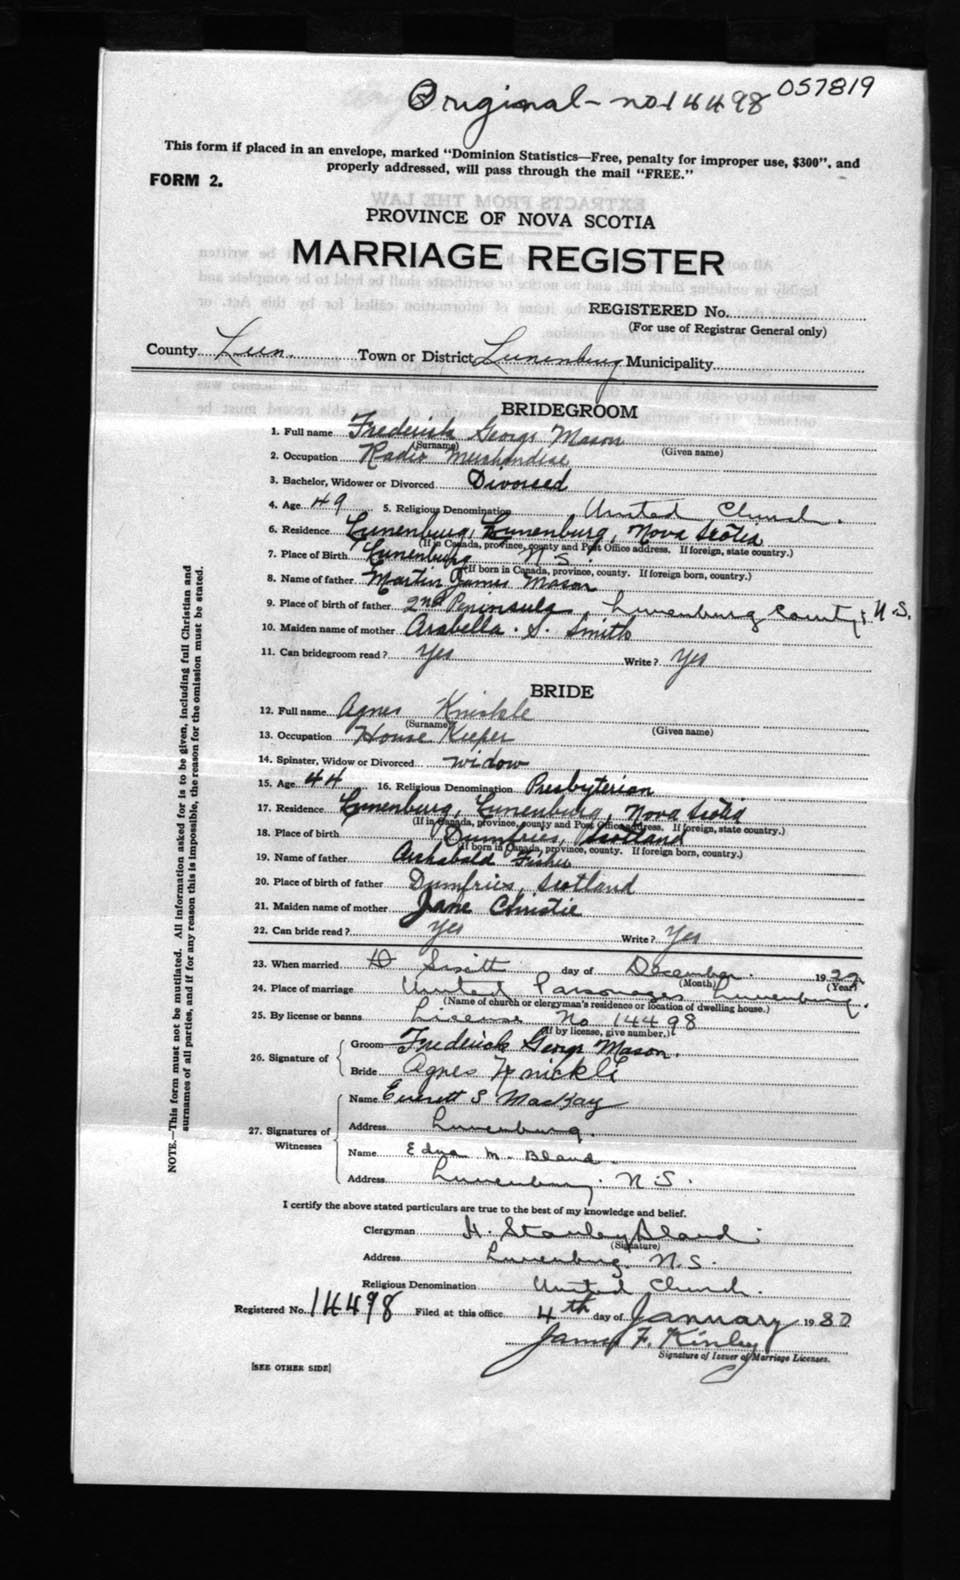 Original - no 14498 057819
This form if placed in an envelope, marked "Dominion Statistics—Free, penalty for improper use, $300", and
properly addressed, will pass through the mail "FREE."
FORM 2.
PROVINCE OF NOVA SCOTIA
MARRIAGE REGISTER
REGISTERED No.
(For use of Registrar General only)
County Lun. Town or District Lunenburg Municipality
BRIDEGROOM
1. Full name Frederick George Mason
(Surname) (Given name)
2. Occupation Radio Merchandise
3. Bachelor, Widower or Divorced Divorsed
4. Age 49 5. Religious Denomination United Church.
6. Residence Lunenburg, Lunenburg, Nova Scotia
(If in Canada, province, county and Post Office address. If foreign, state country.)
7. Place of Birth Lunenburg N.S.
(If born in Canada, province, county. If foreign born, country.)
8. Name of father Martin James Mason
9. Place of birth of father 2nd Peninsula, Lunenburg County, N.S.
10. Maiden name of mother Arabella. S. Smith
11. Can bridegroom read? Yes Write? Yes
BRIDE
12. Full name Agnes Knickle
(Surname) (Given name)
13. Occupation House Keeper
14. Spinster, Widow or Divorced widow
15. Age 44 16. Religious Denomination Presbyterian
17. Residence Lunenburg, Lunenburg, Nova Scotia
(If in Canada, province, county and Post Office address. If foreign, state country.)
18. Place of birth Dumfries, Scotland
(If born in Canada, province, county. If foreign born, country.)
19. Name of father Archabald Fisher
20. Place of birth of father Dumfries, Scotland
21. Maiden name of mother Jane Christie
22. Can bride read? Yes Write? Yes
23. When married day of December. 19
(Month) (Year)
24. Place of marriage United Parsonage, Lunenburg.
(Name of church or clergyman's residence or location of dwelling house.)
25. By license or banns License No 14498
(If by license, give number.)
26. Signature of
Groom Frederick George Mason.
Bride Agnes Knickle
27. Signatures of Witnesses
Name Everett S MacKay
Address Lunenburg.
Name Edna M. Bland
Address Lunenburg. N.S.
I certify the above stated particulars are true to the best of my knowledge and belief.
Clergyman H. Stanley Bland.
(Signature)
Address Lunenburg, N.S.
Religious Denomination United Church.
Registered No. 14498 Filed at this office 4th day of January 19
James F. Kinley
Signature of Issuer of Marriage Licenses.
[SEE OTHER SIDE]
NOTE.—This form must not be mutilated. All information asked for is to be given, including full Christian and
surnames of all parties, and if for any reason this is impossible, the reason for the omission must be stated.